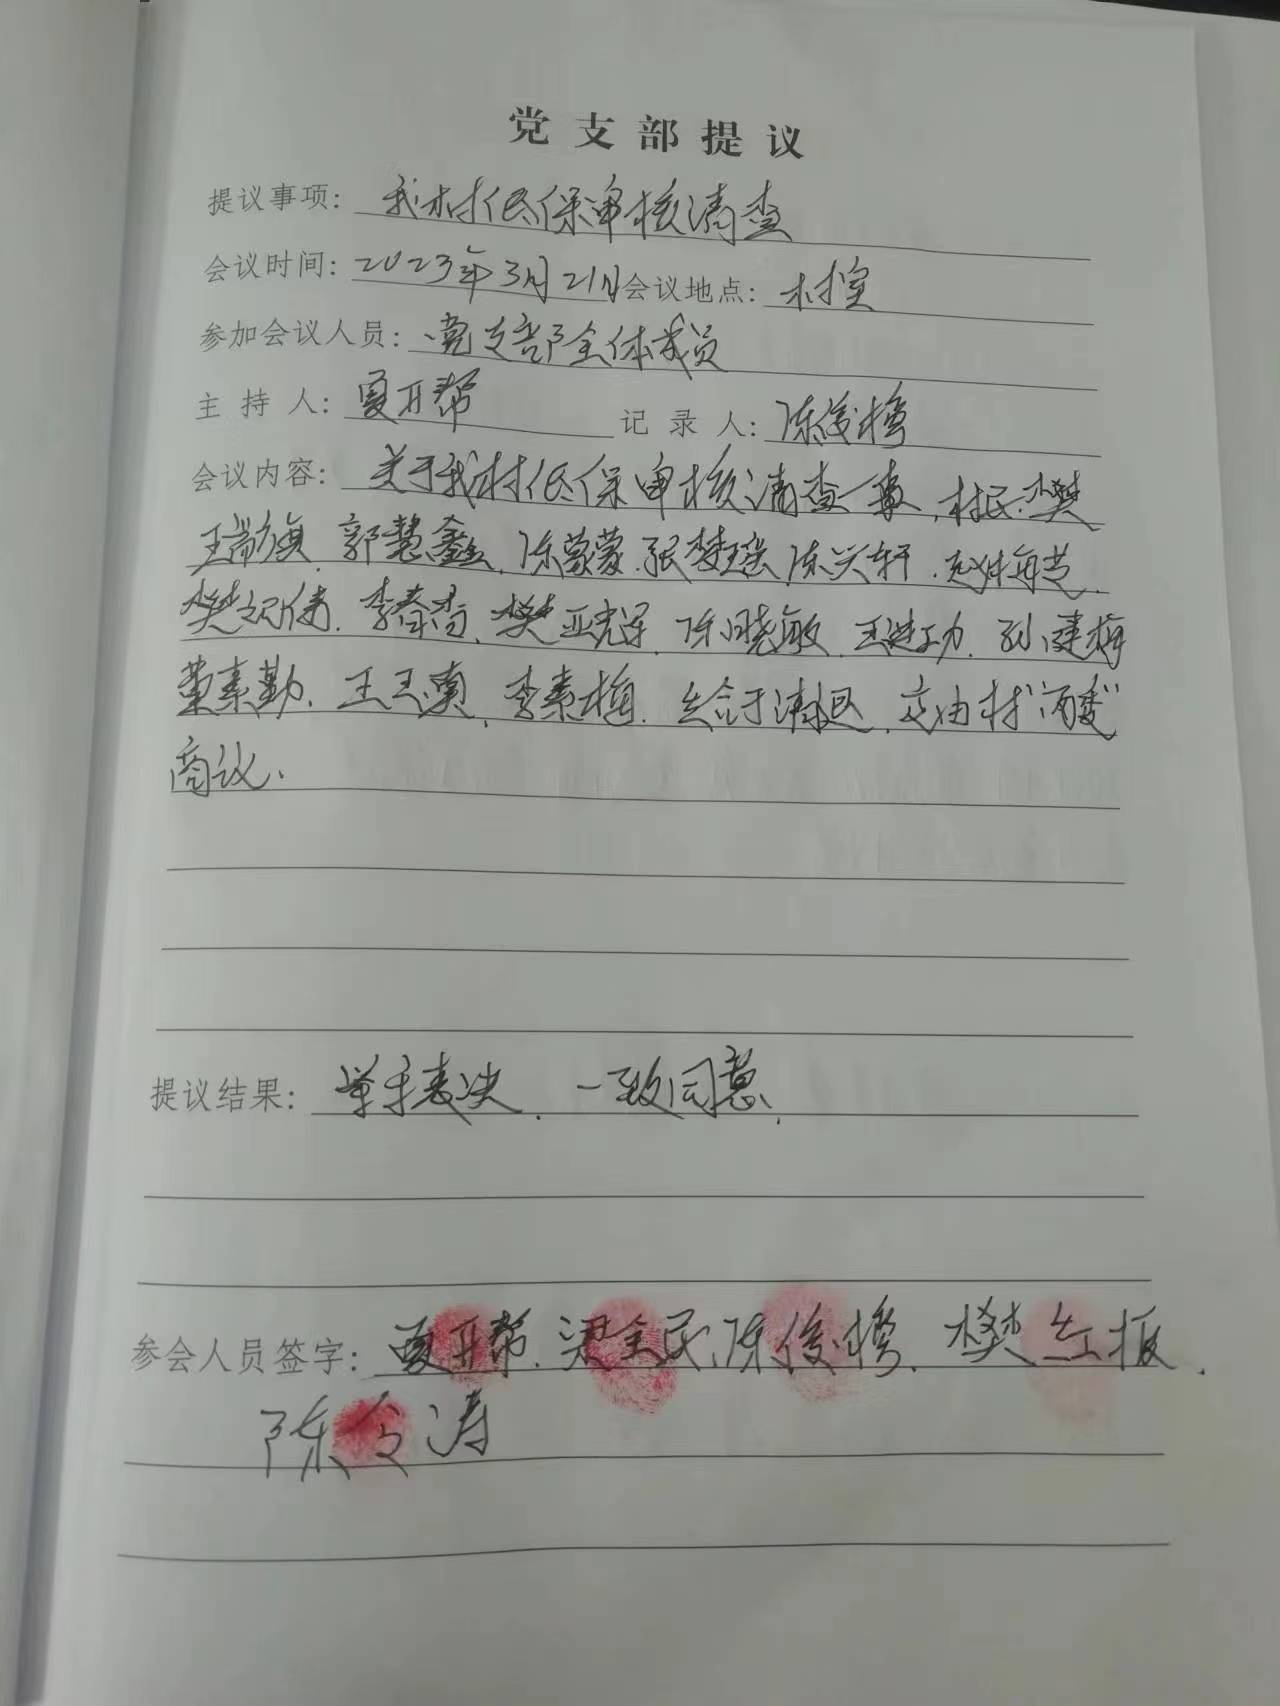 党支部提议
提议事项：我村低保审核清查
会议时间：2023年3月21日 会议地点：村室
参加会议人员：党支部全体成员
主持人：夏开帮 记录人：陈俊梅
会议内容：关于我村低保审核清查一事，村民：樊
瑞旗、郭慧鑫、陈蒙蒙、张梦瑶、陈兴轩、
樊志伟、李春香、樊亚光、陈晓敏、王进功、孙建梅
董素勤、王玉真、李素梅、 于清 ，交由村“两委”
商议。
提议结果：举手表决，一致同意。
参会人员签字：夏开帮、梁全民、陈俊梅、樊红振、
陈会涛